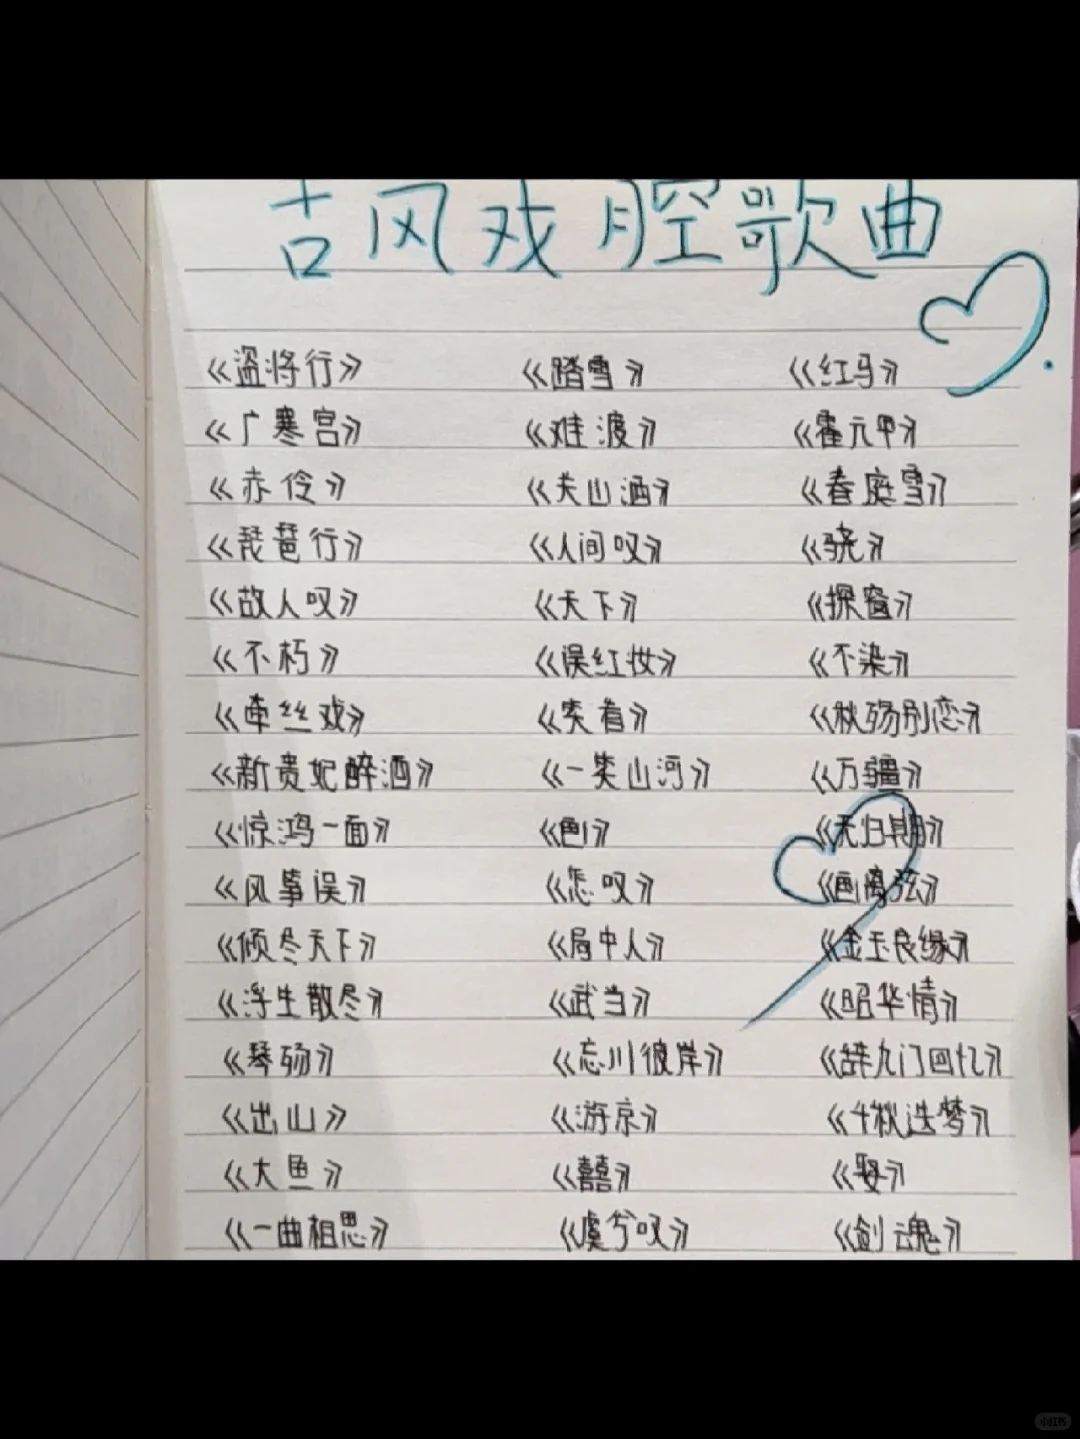 古风戏腔歌曲
《盗将行》 《踏雪》 《红马》
《广寒宫》 《难渡》 《霍元甲》
《赤伶》 《关山酒》 《春庭雪》
《琵琶行》 《人间叹》 《骁》
《故人叹》 《天下》 《探窗》
《不朽》 《误红妆》 《不染》
《牵丝戏》 《笑着》 《秋殇别恋》
《新贵妃醉酒》 《一笑山河》 《万疆》
《惊鸿一面》 《色》 《无归期》
《风筝误》 《怎叹》 《画离弦》
《倾尽天下》 《局中人》 《金玉良缘》
《浮生散尽》 《武当》 《昭华情》
《琴殇》 《忘川彼岸》 《辞九门回忆》
《出山》 《游京》 《千秋迭梦》
《大鱼》 《囍》 《娶》
《一曲相思》 《虞兮叹》 《剑魂》
小红书